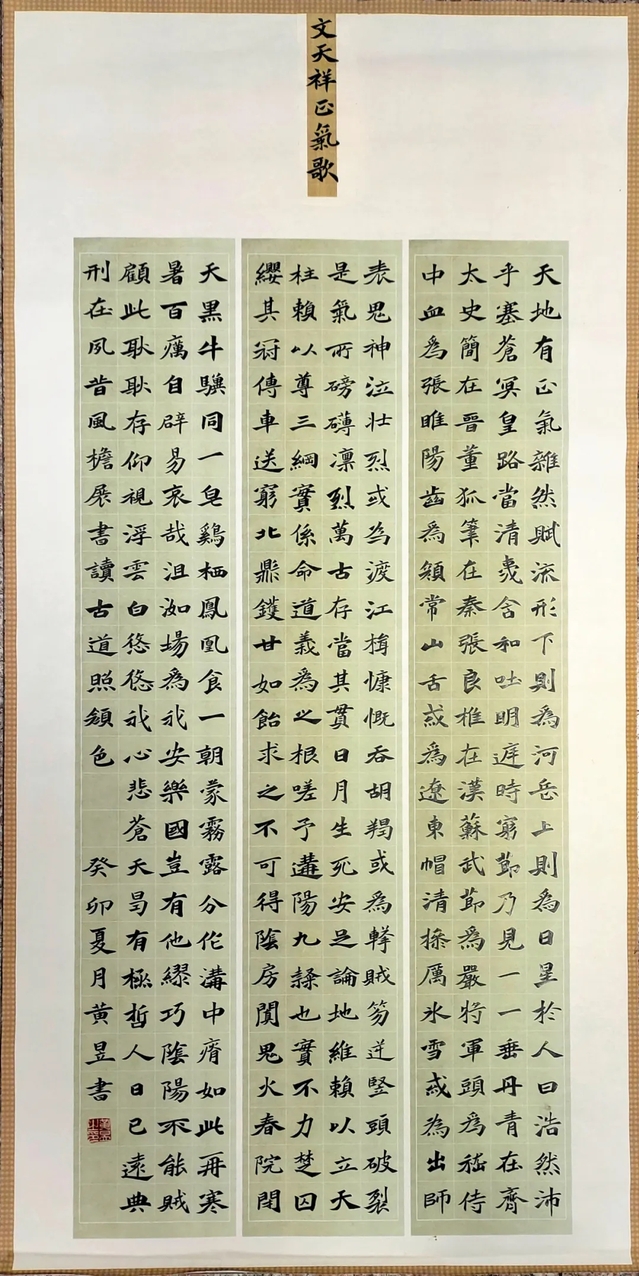 文天祥正氣歌
天地有正氣雜然賦流形下則為河岳上則為日星於人曰浩然沛
乎塞蒼冥皇路當清夷含和吐明庭時窮節乃見一一垂丹青在齊
太史簡在晉董狐筆在秦張良椎在漢蘇武節為嚴將軍頭為嵇侍
中血為張睢陽齒為顏常山舌或為遼東帽清操厲冰雪或為出師
表鬼神泣壯烈或為渡江楫慷慨吞胡羯或為擊賊笏逆豎頭破裂
是氣所磅礴凜烈萬古存當其貫日月生死安足論地維賴以立天
柱賴以尊三綱實係命道義為之根嗟予遘陽九隸也實不力楚囚
纓其冠傳車送窮北鼎鑊甘如飴求之不可得陰房闃鬼火春院閉
天黑牛驥同一皂鷄栖鳳凰食一朝蒙霧露分作溝中瘠如此再寒
暑百癘自辟易哀哉沮洳場為我安樂國豈有他繆巧陰陽不能賊
顧此耿耿存仰視浮雲白悠悠我心悲蒼天曷有極哲人日已遠典
刑在夙昔風檐展書讀古道照顏色 癸卯夏月黃昱書